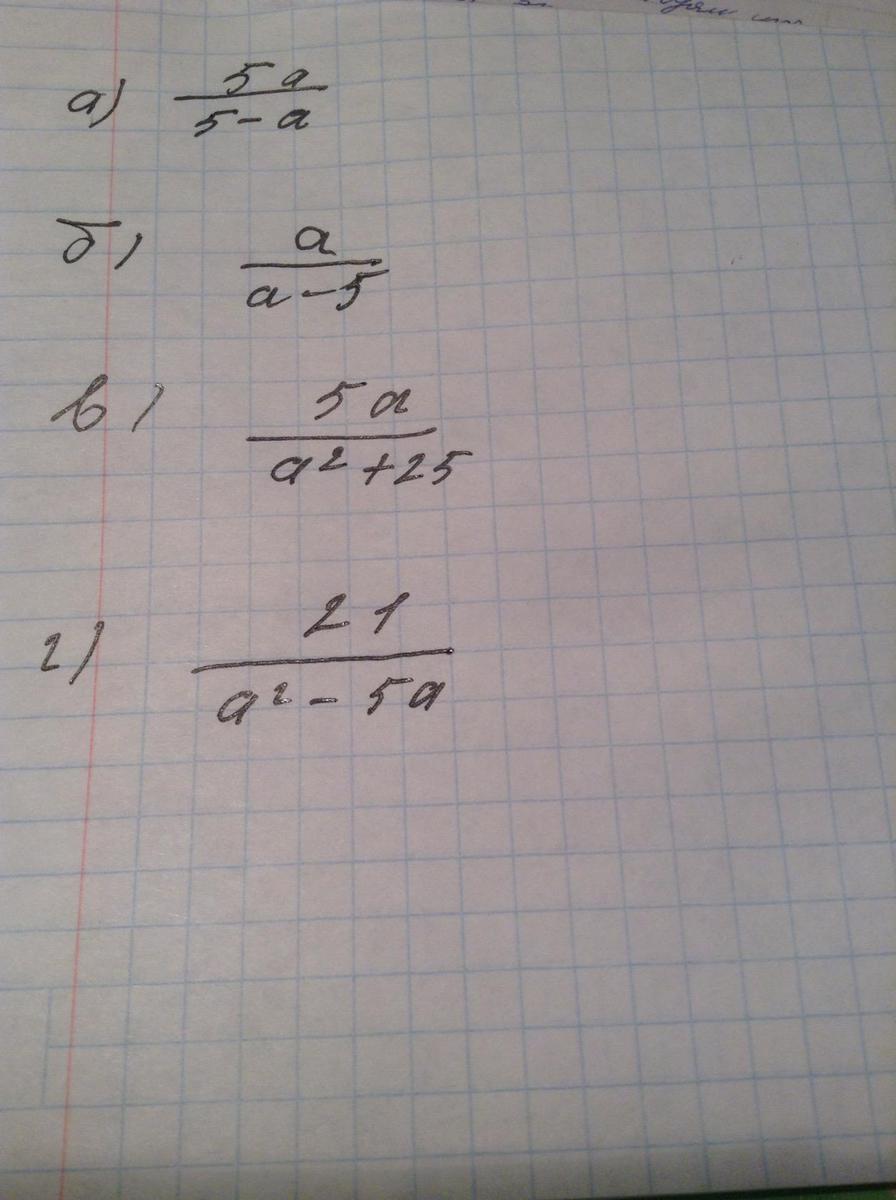 а) 5a/(5-a)
б) a/(a-5)
в) 5a/(a²+25)
г) 21/(a²-5a)